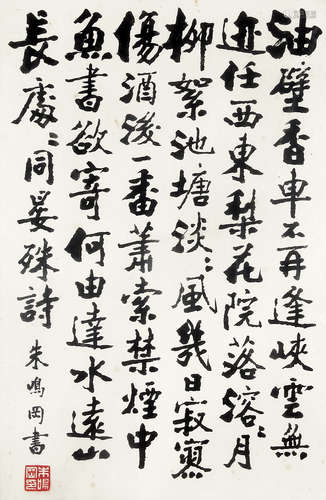 油壁香車不再逢峽雲無
迹任西東梨花院落溶〻月
柳絮池塘淡〻風幾日寂寥
傷酒後一番蕭索禁煙中
魚書欲寄何由達水遠山
長處〻同晏殊詩
朱鳴岡書